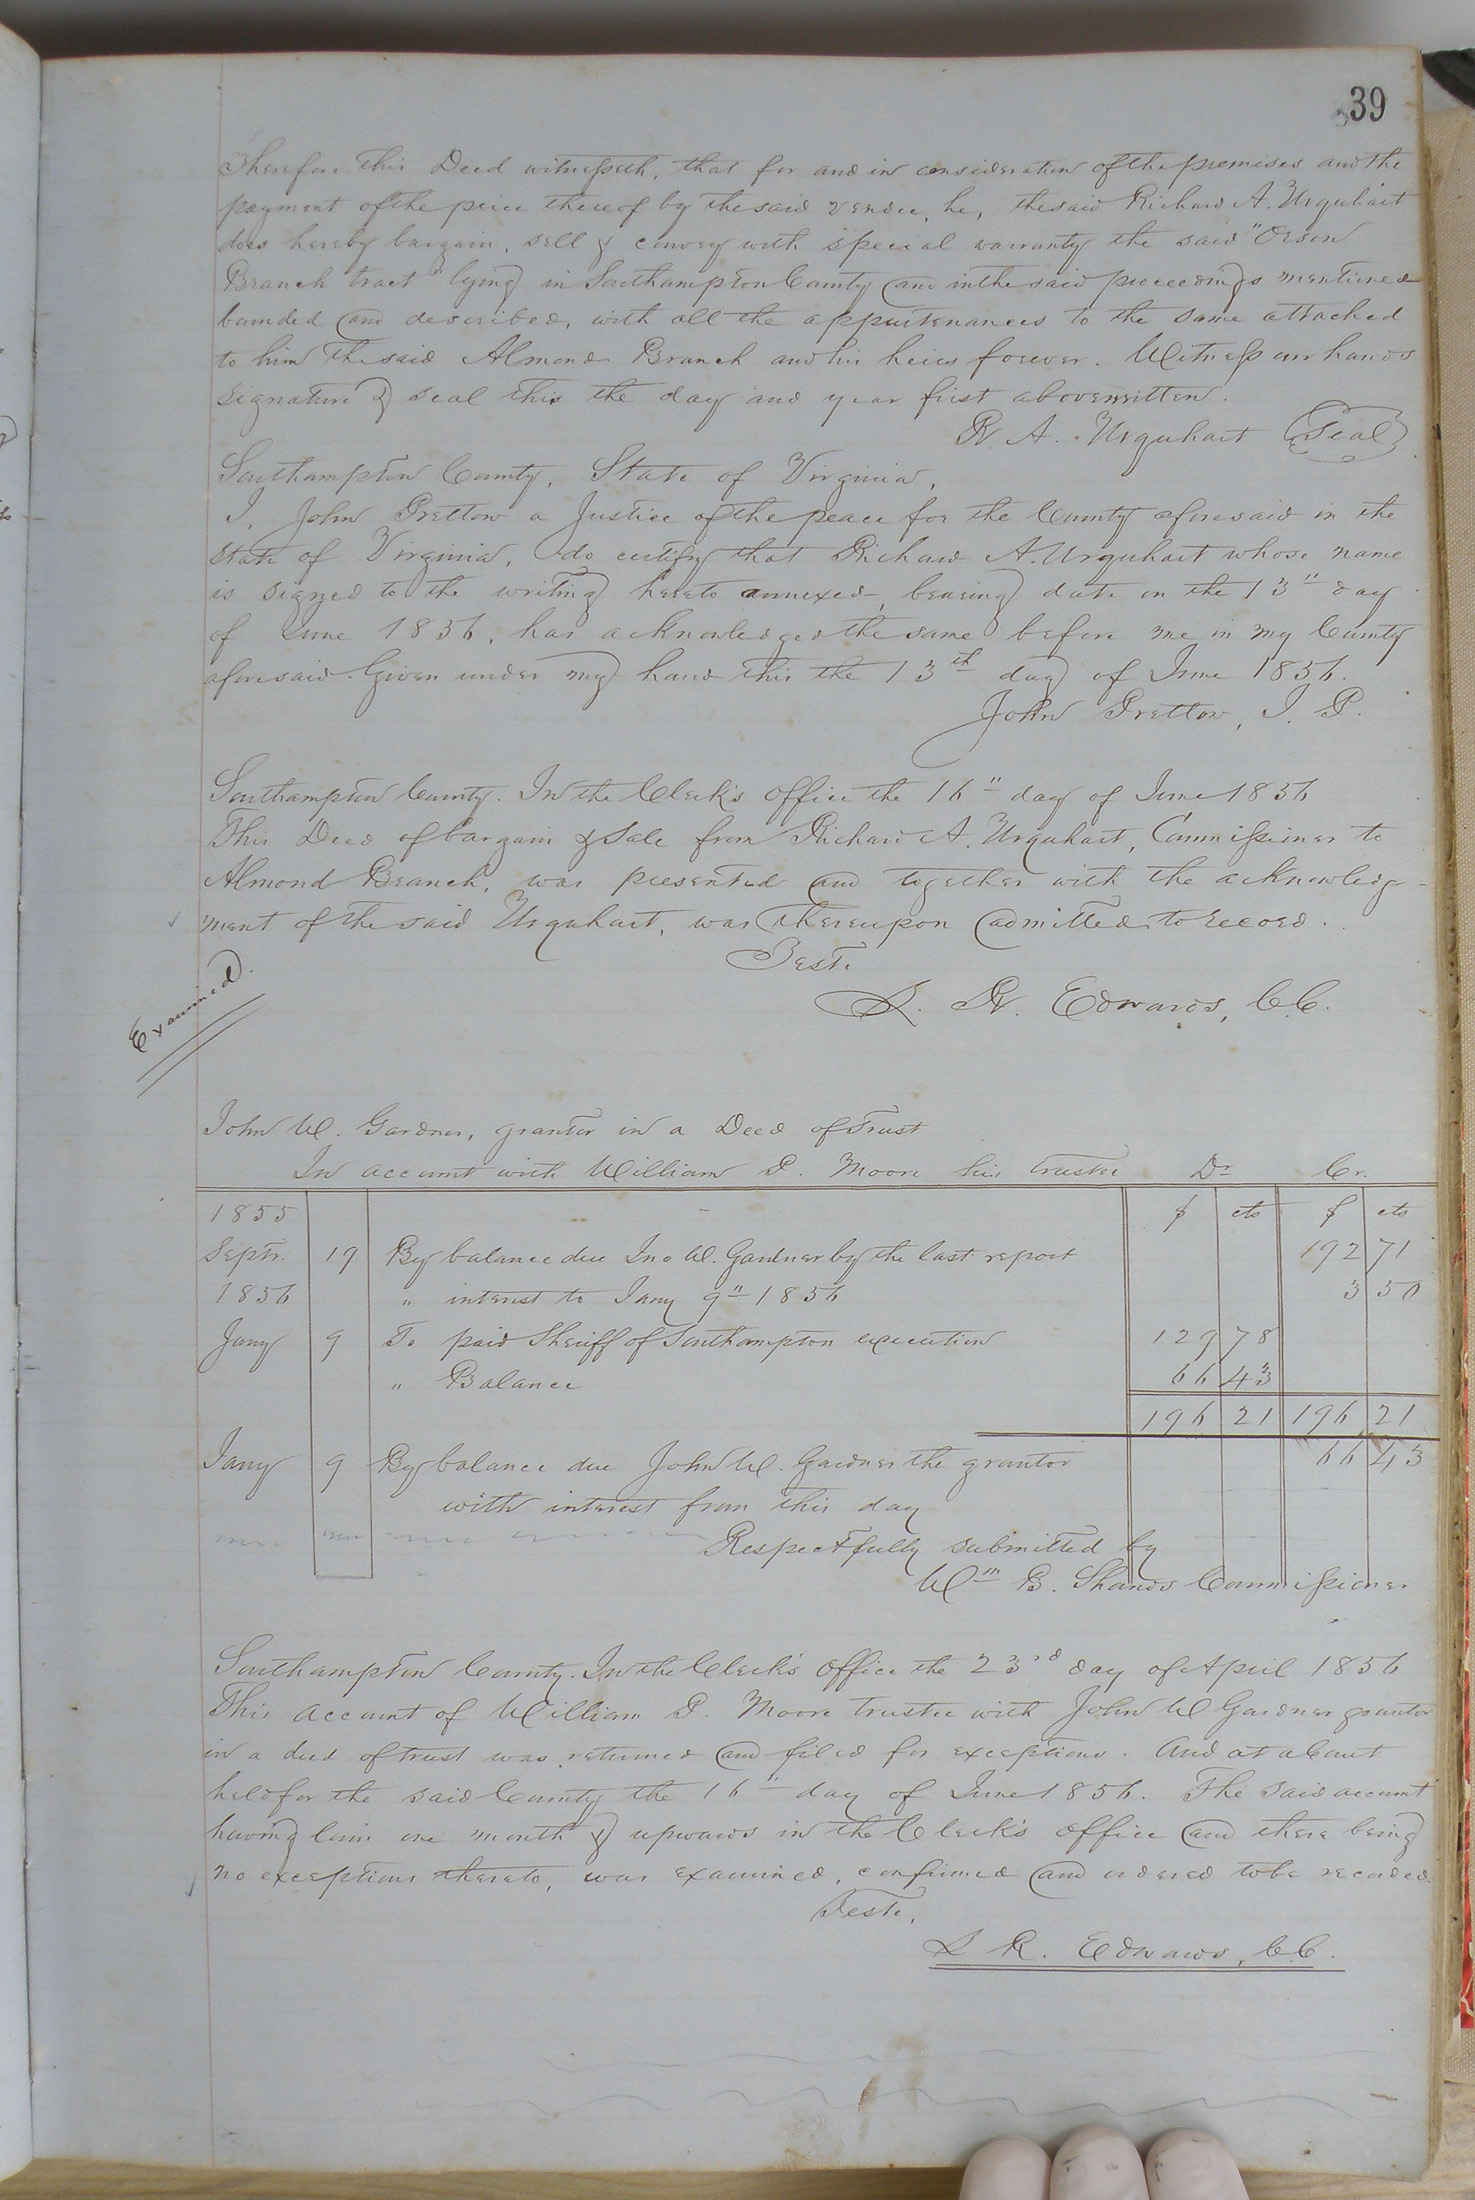 39
Therefore this Deed witnesseth, that for and in consideration of the premises and the
payment of the price thereof by the said vendee, he, the said Richard A. Urquhart
does hereby bargain, sell & convey with special warranty the said "Orson
Branch tract" lying in Southampton County and in the said proceedings mentioned
bounded and described, with all the appurtenances to the same attached
to him the said Almond Branch and his heirs forever. Witness our hands
signature & seal this the day and year first above written.
R. A. Urquhart (Seal)
Southampton County, State of Virginia,
I, John Pretlow a Justice of the peace for the County aforesaid in the
State of Virginia, do certify that Richard A. Urquhart whose name
is signed to the writing hereto annexed, bearing date on the 13" day
of June 1856, has acknowledged the same before me in my County
aforesaid. Given under my hand this the 13th day of June 1856.
John Pretlow, J. P.
Southampton County. In the Clerk's Office the 16" day of June 1856
This Deed of bargain & Sale from Richard A. Urquhart, Commissioner to
Almond Branch, was presented and together with the acknowledg-
ment of the said Urquhart, was thereupon admitted to record.
Teste.
L. R. Edwards, C.C.
Examined.
John W. Gardner, grantor in a Deed of Trust
In account with William P. Moore his trustee Dr Cr.
1855 $ cts $ cts
Septr. 19 By balance due Jno W. Gardner by the last report 192 71
1856 " interest to Jany 9" 1856 3 50
Jany 9 To paid Sheriff of Southampton execution 129 78
" Balance 66 43
196 21 196 21
Jany 9 By balance due John W. Gardner the grantor 66 43
with interest from this day
Respectfully submitted by
Wm B. Shands Commissioner
Southampton County. In the Clerk's Office the 23rd day of April 1856
This account of William P. Moore trustee with John W Gardner grantor
in a deed of trust was returned and filed for exceptions. And at a Court
held for the said County the 16" day of June 1856. The said account
having lain one month & upwards in the Clerk's Office and there being
no exceptions thereto, was examined, confirmed and ordered to be recorded.
Teste,
L R. Edwards, C.C.